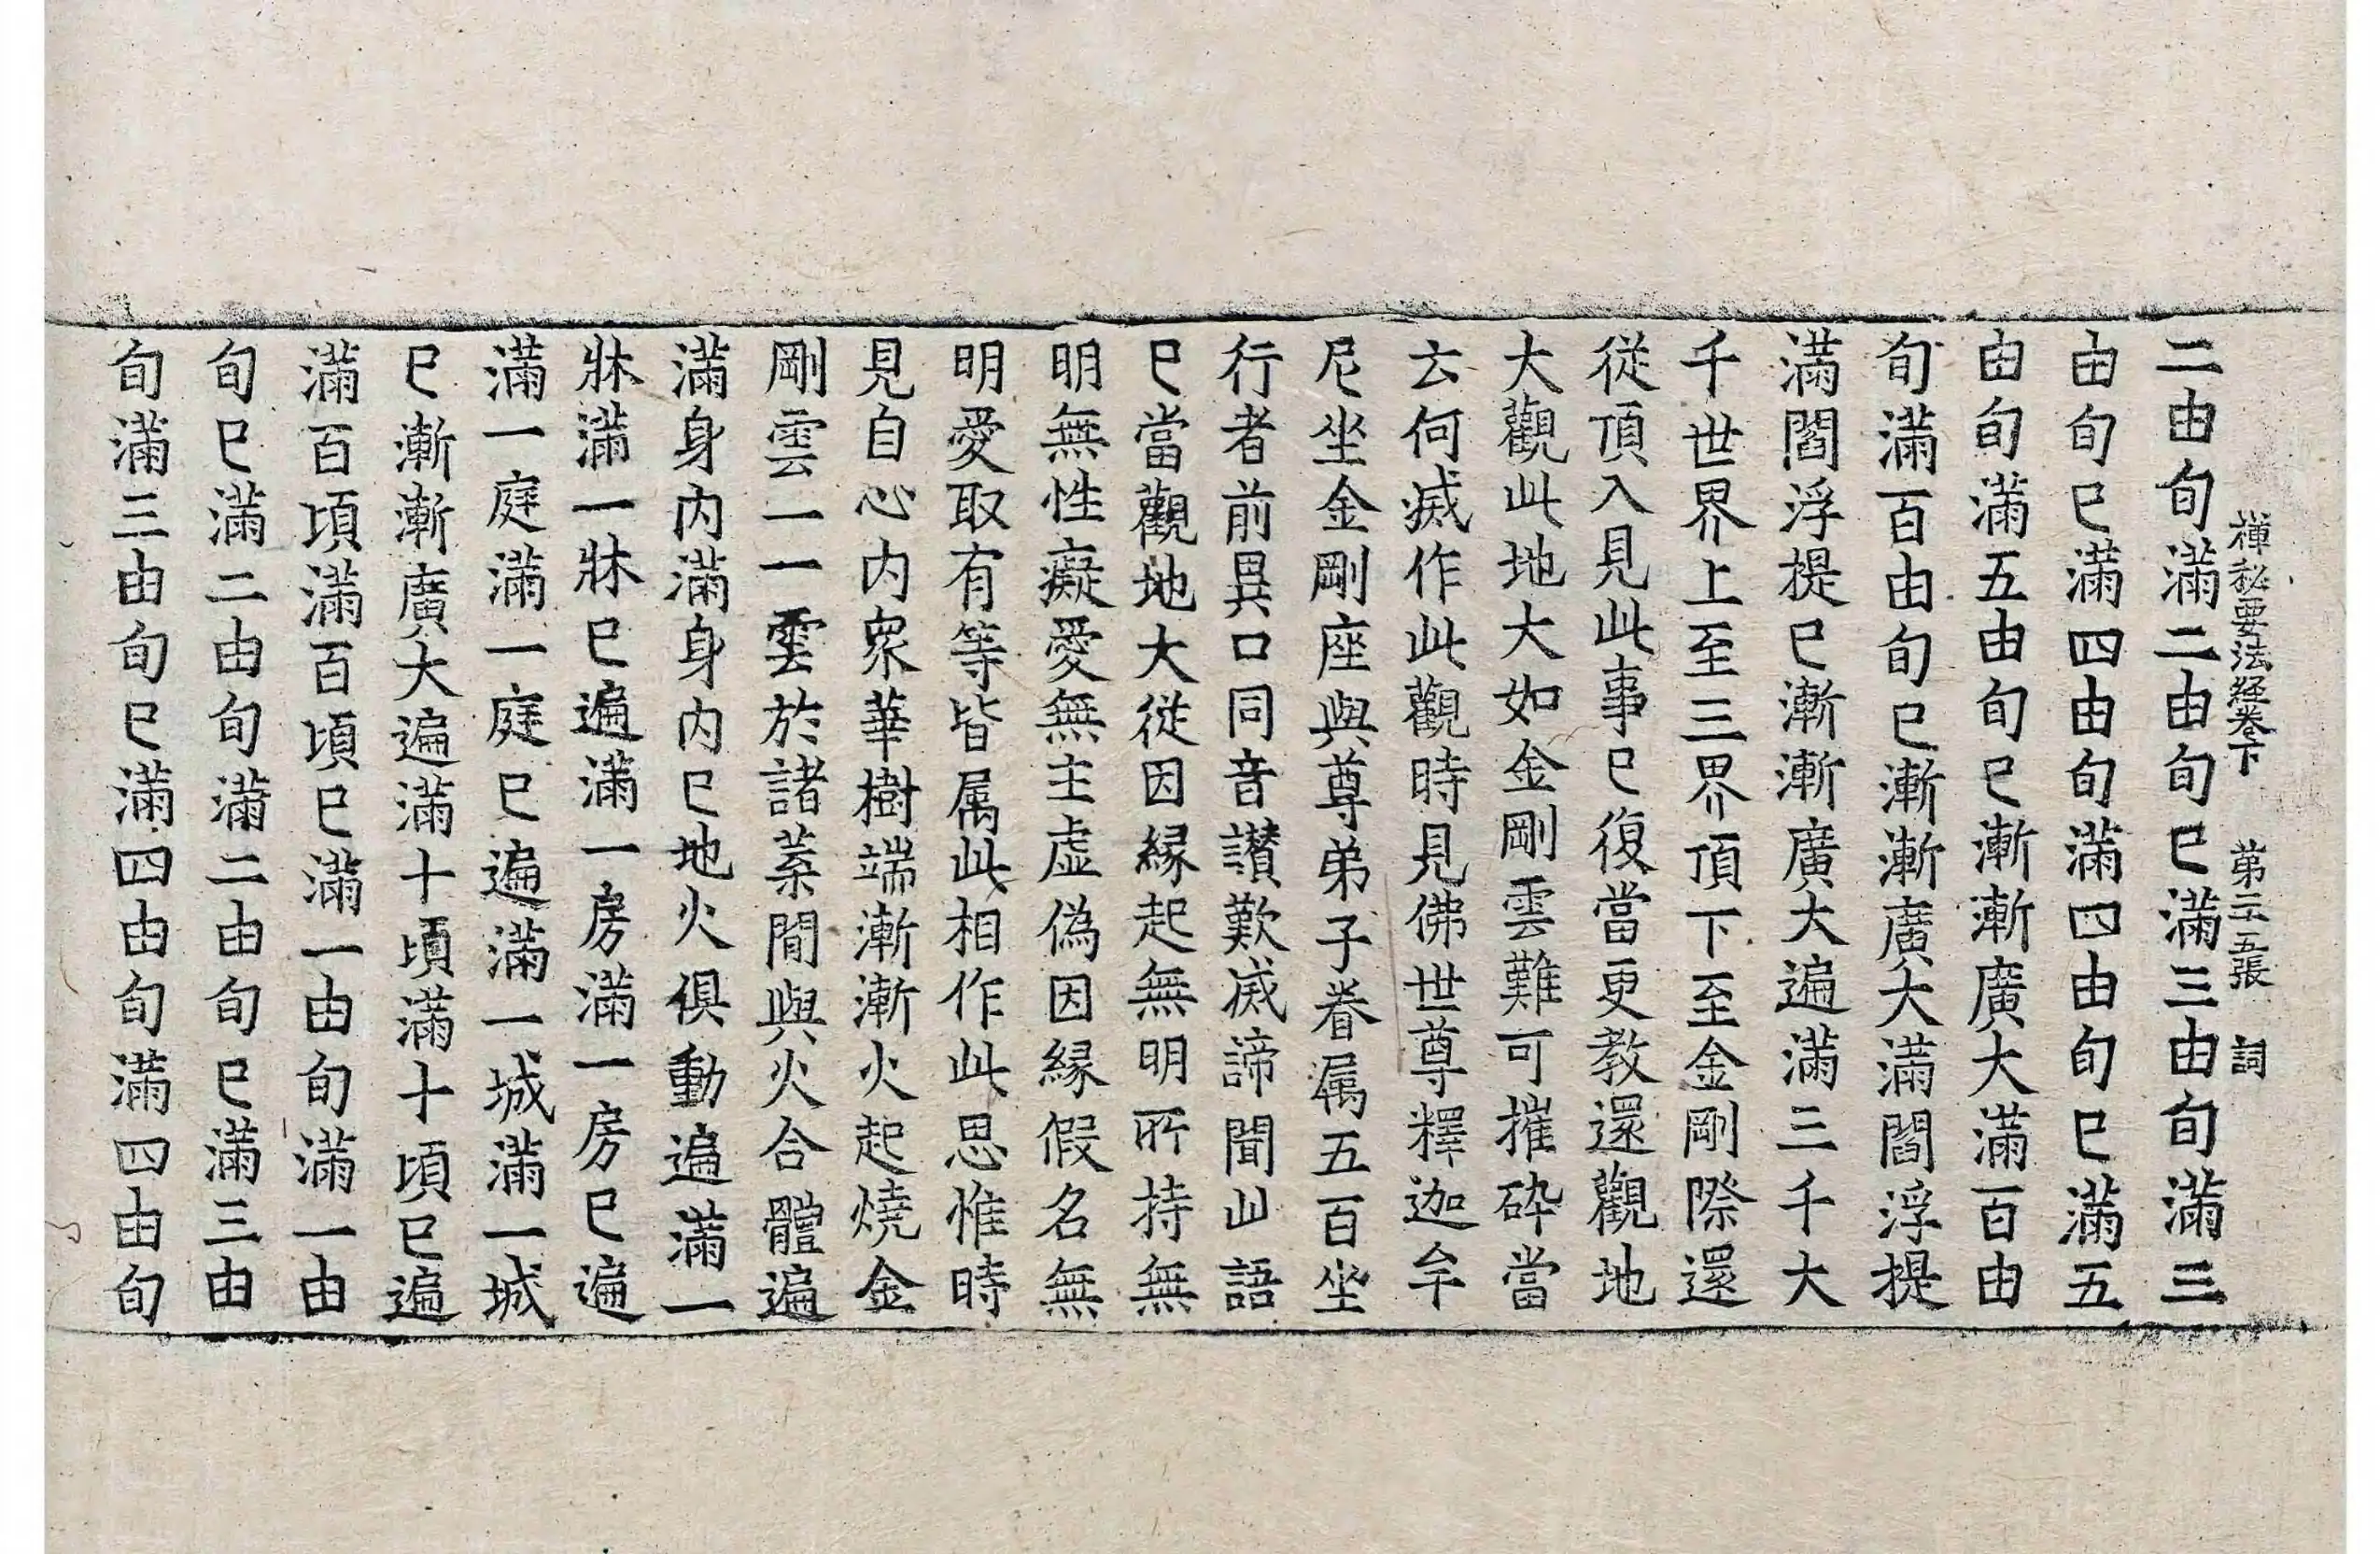 禪秘要法経卷下 第二五張 詞
二由旬滿二由旬已滿三由旬滿三
由旬已滿四由旬滿四由旬已滿五
由旬滿五由旬已漸漸廣大滿百由
旬滿百由旬已漸漸廣大滿閻浮提
滿閻浮提已漸漸廣大遍滿三千大
千世界上至三界頂下至金剛際還
從頂入見此事已復當更教還觀地
大觀此地大如金剛雲難可摧碎當
云何滅作此觀時見佛世尊釋迦牟
尼坐金剛座與尊弟子眷属五百坐
行者前異口同音讃歎滅諦聞此語
已當觀地大從因縁起無明所持無
明無性癡愛無主虛偽因縁假名無
明愛取有等皆属此相作此思惟時
見自心内衆華樹端漸漸火起燒金
剛雲一一雲於諸葉間與火合體遍
滿身内滿身内已地火俱動遍滿一
牀滿一牀已遍滿一房滿一房已遍
滿一庭滿一庭已遍滿一城滿一城
已漸漸廣大遍滿十頃滿十頃已遍
滿百頃滿百頃已滿一由旬滿一由
旬已滿二由旬滿二由旬已滿三由
旬滿三由旬已滿四由旬滿四由旬